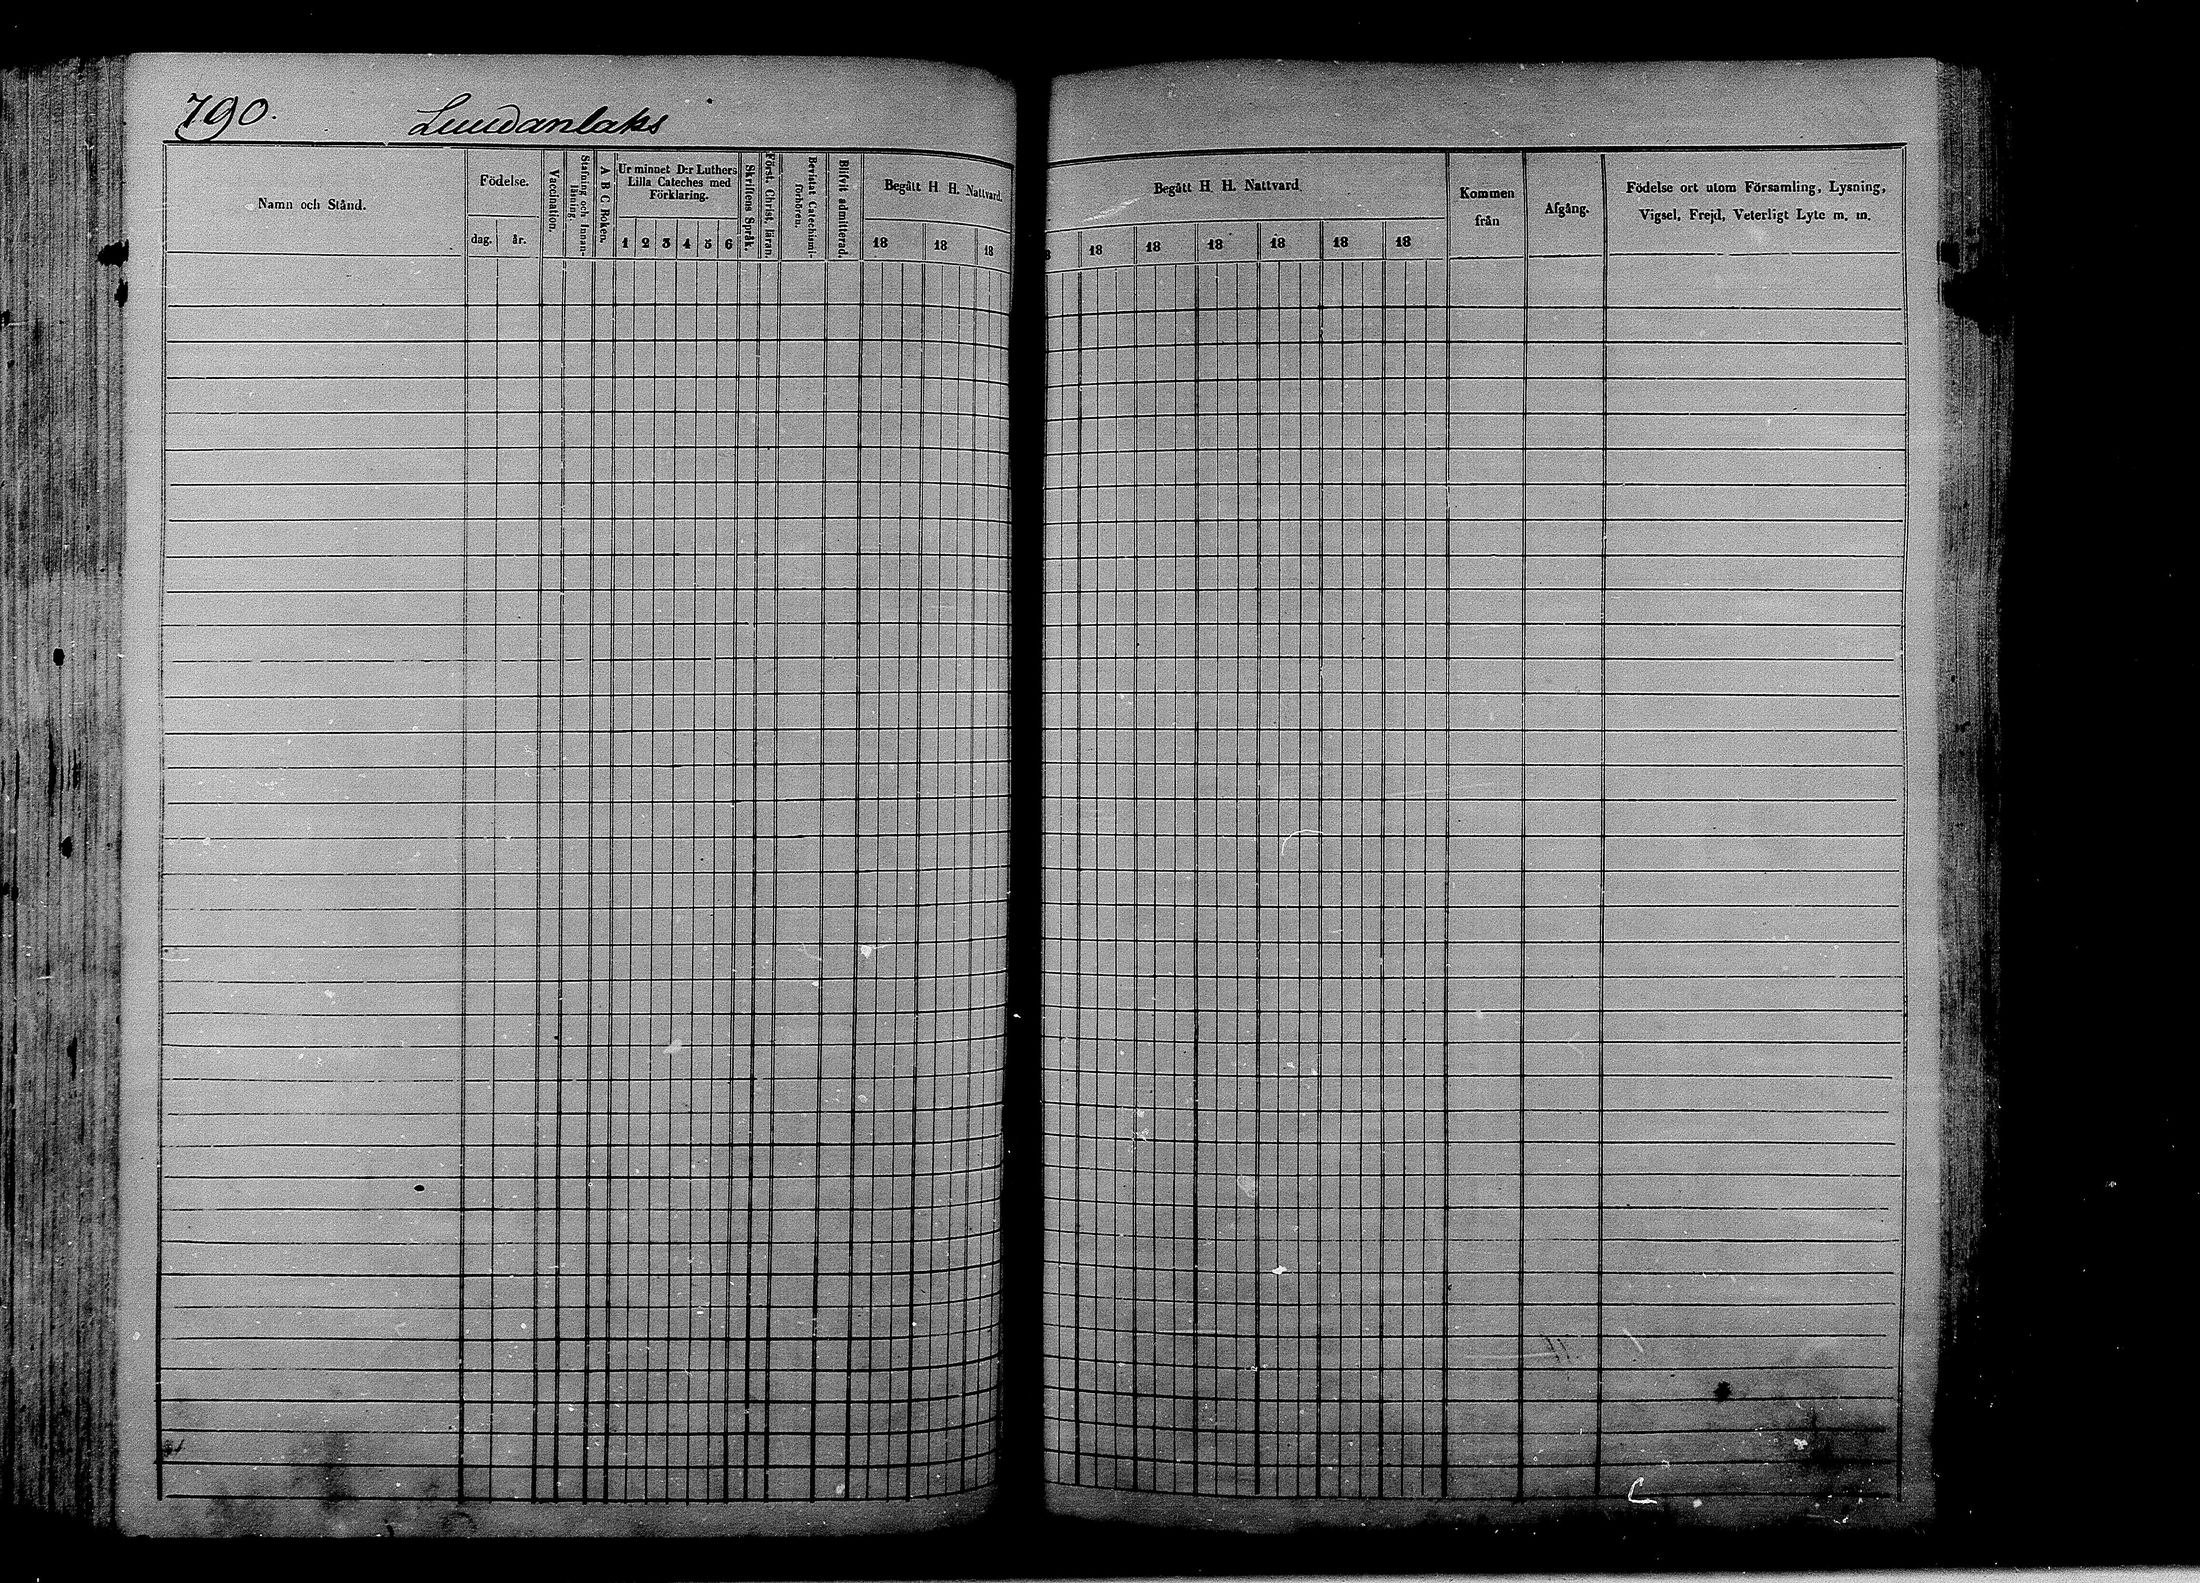 790.
Luudanlaks
Namn och Stånd.
Födelse.
dag.
år.
Vaccination.
Stafning och Innan-
läsning.
A B C Boken.
Ur minnet D:r Luthers
Lilla Cateches med
Förklaring.
1 2 3 4 5 6
Skriftens Språk.
Först. Christ. läran
Bevistat Catechismi-
förhören.
Blifvit admitterad.
Begått H H. Nattvard.
18 18 18
Begått H H. Nattvard
8 18 18 18 18 18 18
Kommen
från
Afgång.
Födelse ort utom Församling, Lysning,
Vigsel, Frejd, Veterligt Lyte m. m.